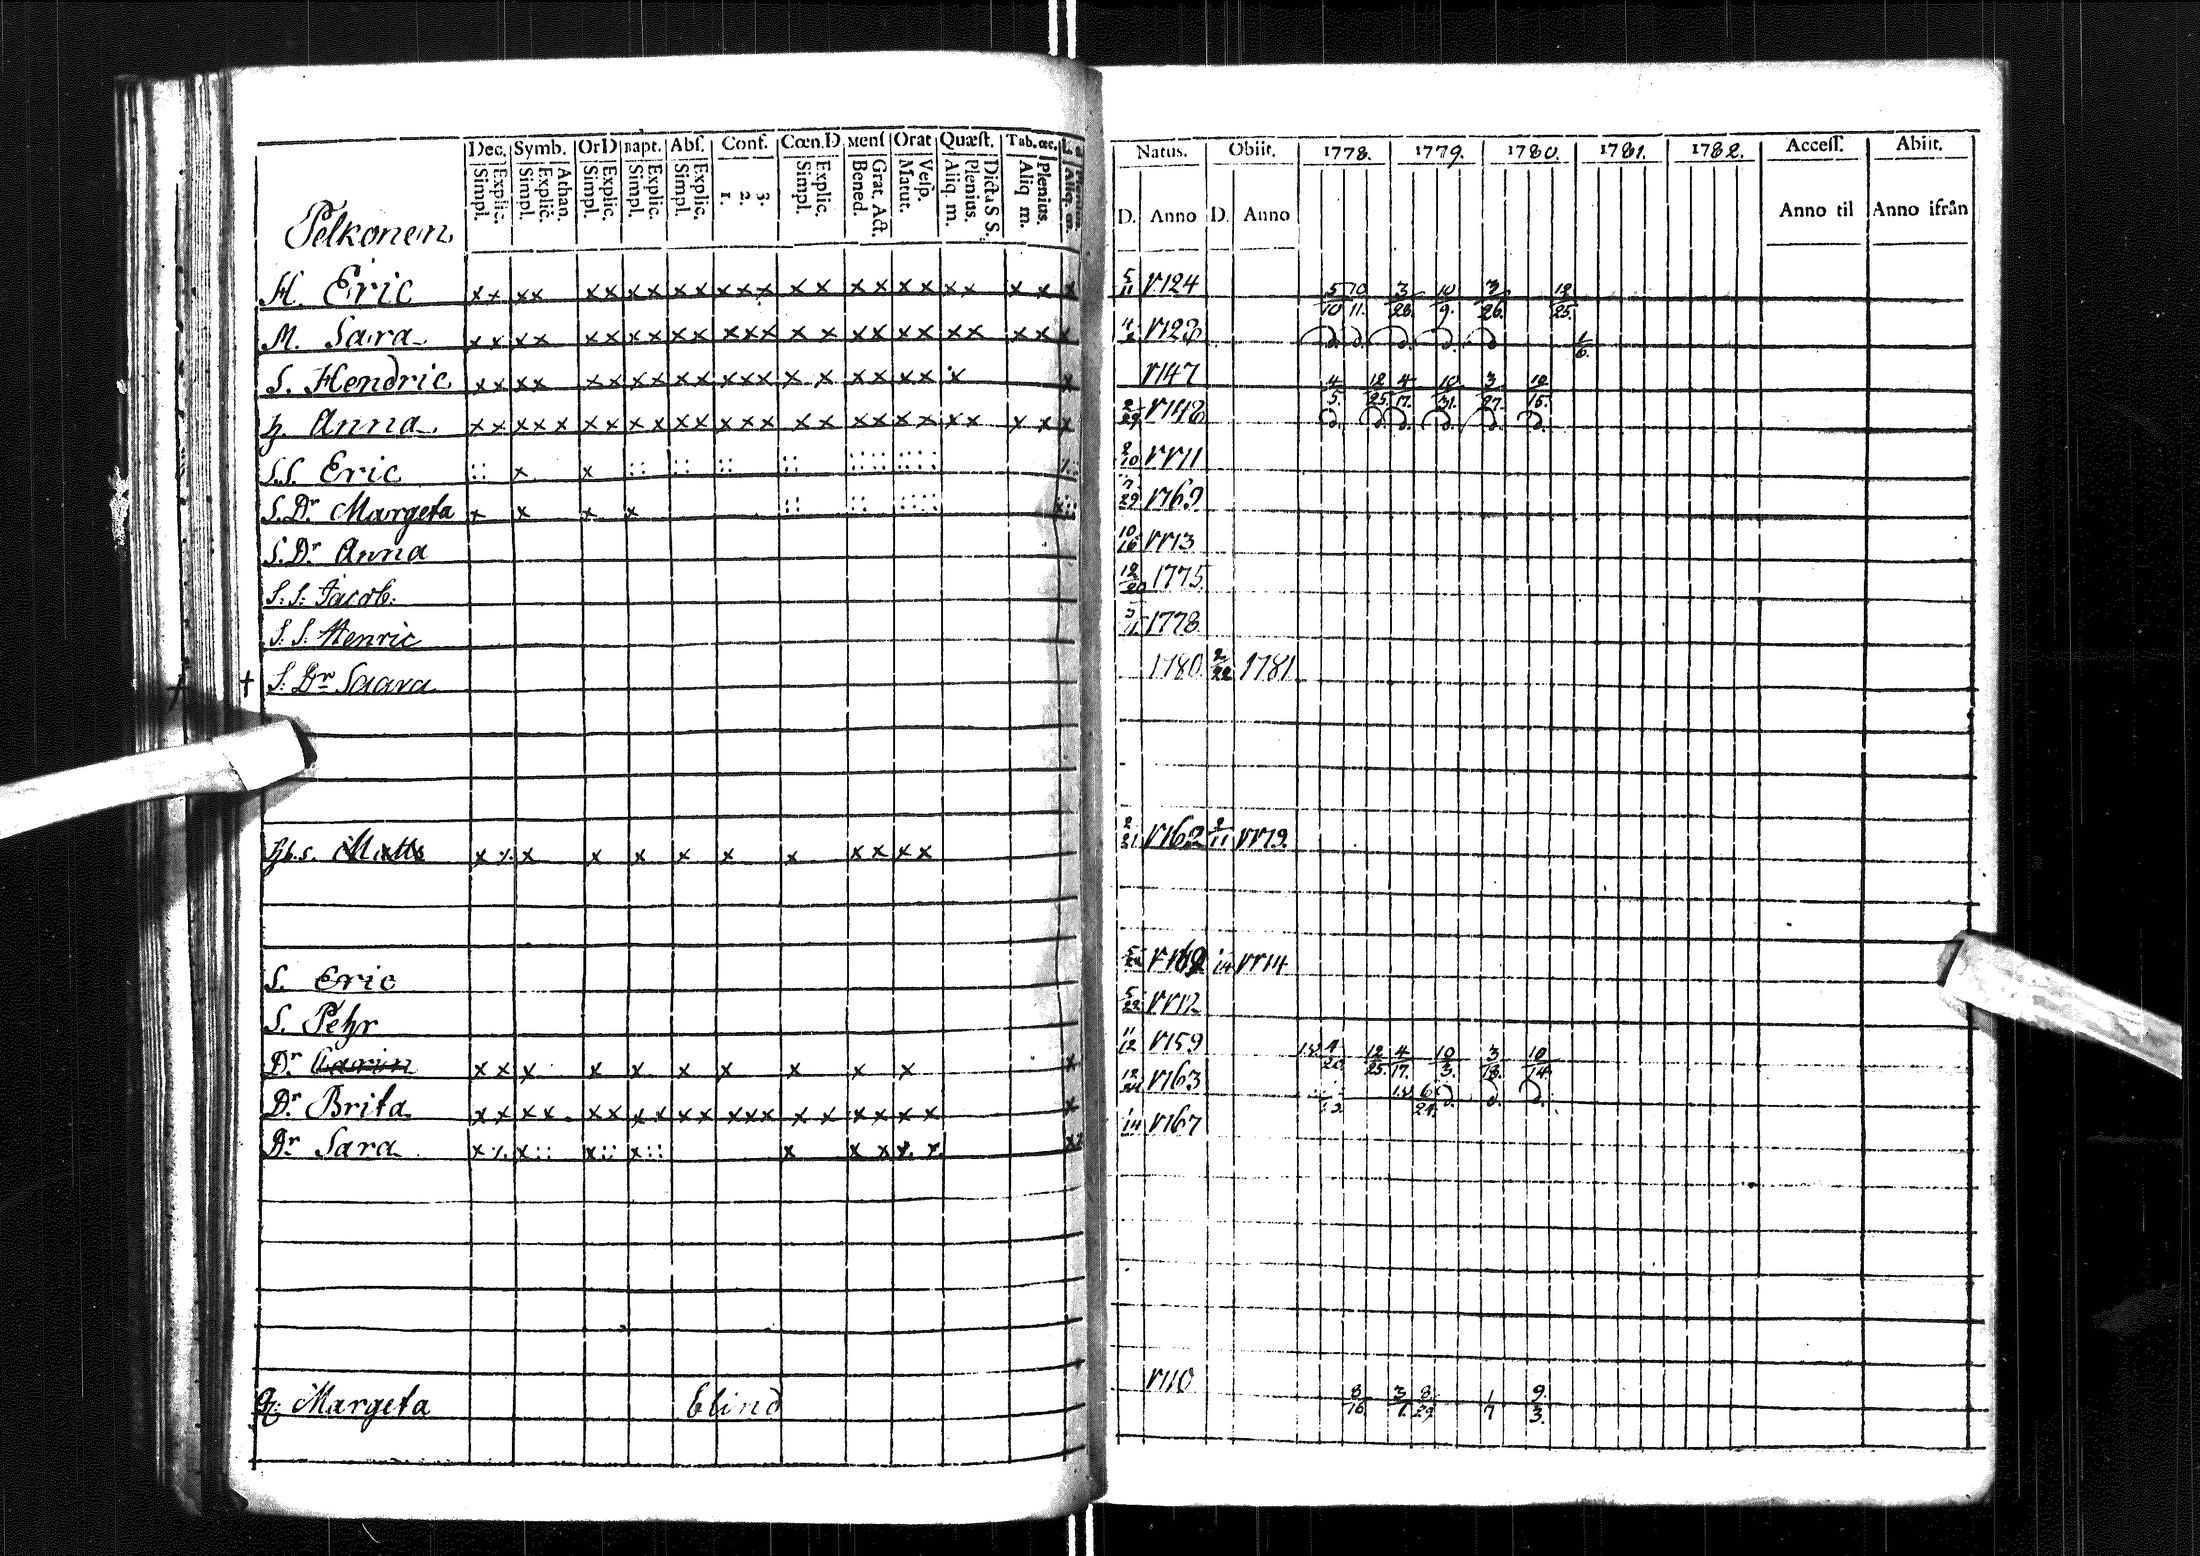 Dec. Symb. OrD Bapt. Abs. Conf. Cœn.D. Mens Orat Quæst. Tab. œc.
Simpl. Explic. Simpl. Explic. Athan. Simpl. Explic. Simpl. Explic. Simpl. Explic. 1. 2. 3. Simpl. Explic. Bened. Grat. Act. Matut. Vesp. Aliq. m. Plenius. Dicta S S. Aliq m. Plenius.
Natus. Obiit. 1778. 1779. 1780. 1781. 1782. Access. Abiit.
D. Anno D. Anno Anno til Anno ifrån
Pelkonen
H. Eric 5/11 1724 5/10 10/11. 3/28. 10/9. 3/26. 12/25.
M. Sara 1/6.
S. Hendric 1747 4/5. 12/25. 4/17. 10/31. 3/27. 10/15.
h. Anna 2/29 1748
S.S. Eric 2/10 1771
S. Dr. Margeta 1769
S. Dr Anna 10/16 1773
S. S. Jacob. 12/20 1775
S. S. Henric 1778
† S. Dr Saara 1780 2/22 1781
Matts 2/21 1762 2/11 1779
S. Eric 1774
S. Pehr 5/22 1772
Dr Carin 11/12 1759 12/25. 4/17. 10/3. 3/18. 10/14
Dr. Brita 12/24 1763 6/24.
Dr Sara 1767
Margeta blind 1710 8/16. 3/7. 8/29. 1/7 9/3.